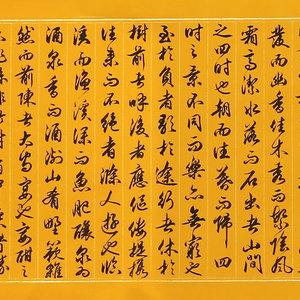 發而幽香佳木秀而繁陰風
霜高潔水落而石出者山間
之四時也朝而往暮而歸四
時之景不同而樂亦無窮也
至於負者歌於途行者休於
樹前者呼後者應傴僂提攜
往來而不絕者滁人遊也臨
溪而漁溪深而魚肥釀泉為
酒泉香而酒洌山肴野蔌雜
然而前陳者太守宴也宴酣之